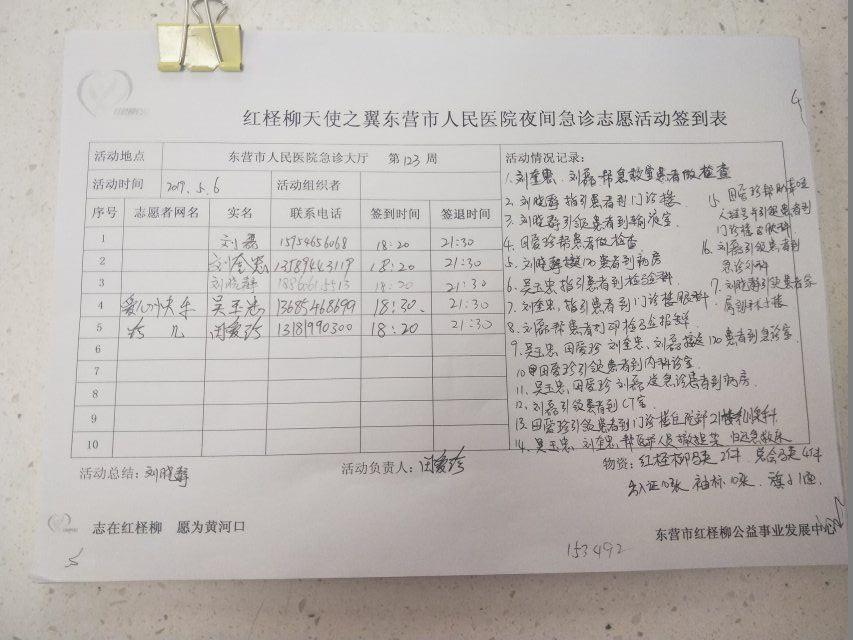 红柽柳天使之翼东营市人民医院夜间急诊志愿活动签到表
活动地点 东营市人民医院急诊大厅 第123周
活动时间 2017.5.6 活动组织者
序号 志愿者网名 实名 联系电话 签到时间 签退时间
1 刘磊 15954656068 18:20 21:30
2 刘奎忠 13589443119 18:20 21:30
3 刘晓静 18866155513 18:20 21:30
4 爱心快乐 吴玉忠 13685468699 18:30 21:30
5 珍儿 田爱珍 13181990300 18:20 21:30
6
7
8
9
10
活动情况记录:
1. 刘奎忠、刘磊帮急救室患者做检查
2. 刘晓静指引患者到门诊楼
3. 刘晓静引领患者到输液室
4. 田爱珍帮患者做检查
5. 刘晓静接120患者到病房
6. 吴玉忠指引患者到检验科
7. 刘奎忠指引患者到门诊楼眼科
8. 刘磊帮患者打印检验报告单
9. 吴玉忠、田爱珍、刘奎忠、刘磊接送120患者到急诊室
10 田爱珍引领患者到内科诊室
11. 吴玉忠、田爱珍、刘磊送急诊患者到病房
12. 刘磊引领患者到CT室
13. 田爱珍引领患者到门诊楼
14. 吴玉忠、刘奎忠帮医护人员
15. 田爱珍帮
人挂号并引领患者到
门诊楼
16. 刘磊引领患者到
急诊外科
17. 刘晓静引领患者家
属
活动总结: 刘晓静
活动负责人: 田爱珍
物资: 红柽柳马夹21件 总会马夹4件
出入证10张 袖标10张 旗子1面
志在红柽柳 愿为黄河口
东营市红柽柳公益事业发展中心
153492